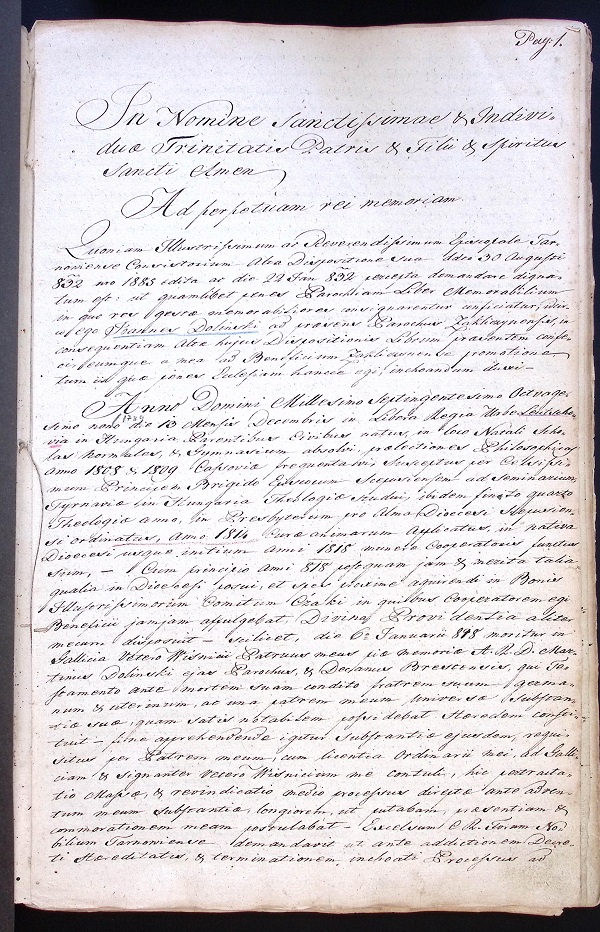 Pag: 1.
In Nomine Sanctissimae & Indivi-
duae Trinitatis Patris & Filii & Spiritus
Sancti Amen
Ad perpetuam rei memoriam
Quoniam Illustrissimum ac Reverendissimum Episcopale Tar-
noviense Consistorium Alta Dispositione sua ddto 30 Augusti
832 nro 1885 edita ac die 22 Jan 832 percepta demandare digna-
tum est: ut quamlibet penes Parochiam Liber Memorabilium
in quo res gestae memorabiliores consignarentur conficiatur,
ego Joannes Dolinski ad praesens Parochus Zakliczynensis, in
consequentiam Altae hujus Dispositionis Librum praesentem
a mea ad Beneficium Zakliczynense promotione
tum in qua penes Eclesiam hancce egi, inchoandum duxi -
Anno Domini Millesimo Septingentesimo Octuage-
simo nono 1789 die 13 Mensis Decembris in Libera Regia Urbe Leutscho-
via in Hungaria Parentibus Civibus natus, in loco Natali Scho-
las Normales, & Gymnasium absolvi, praelectiones Philosophicas
Anno 1808 & 1809 Cassoviae frequentavi, Susceptus per Celsissi-
mum Principem Brigido Episcopum Scepusiensem ad Seminarium
Tyrnaviae in Hungaria Theologiae studui, ibidem finito quarto
Theologiae anno, in Presbyterum pro Alma Dioecesi Scepusien-
si ordinatus, Anno 1814 Curae animarum Applicatus, in nativa
Dioecesi usque initium Anni 1818 munere Cooperatoris functus
sum, - Cum principio Anni 818 postquam jam & merita talia
qualia in Dioecesi posui, et spes proxime aquirendi in Bonis
Illustrissimorum Comitum Czaki in quibus Cooperatorem egi
Beneficii jamjam afulgebat Divina Providentia aliter
mecum disposuit - scilicet, die 6a Januarii 818 moritur in
Gallicia Vetero Wisnicii Patruus meus piae memoriae A. R. D. Mar-
tinus Dolinski ejas Parochus, & Decanus Brzestensis, qui Te-
stamento ante mortem suam condito fratrem suum germa-
num & uterinum, ac una patrem meum, universae Substan-
tiae suae, quam satis notabilem possidebat Heredem consti-
tuit - pro aprehendenda igitur Substantia ejusdem, requi-
situs per Patrem meum, cum licentia Ordinarii mei, ad Galli-
ciam & signanter Vetero Wisnicium me contuli, hic pertracta-
tio Massae, & revindicatio medio processus directae ante adven-
tum meum Substantiae, longiorem, ut putabam, praesentiam &
commorationem meam postulabat - Excelsum C. R. Forum No-
bilium Tarnoviense demandavit ut ante addictionem Decre-
ti Haereditatis, & terminationem inchoati Processus ad